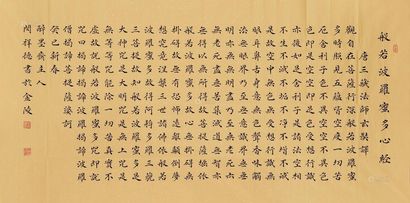 般若波羅蜜多心經
唐三藏法師玄奘譯
觀自在菩薩行深般若波羅蜜
多時照見五蘊皆空度一切苦
厄舍利子色不異空空不異色
色即是空空即是色受想行識
亦復如是舍利子是諸法空相
不生不滅不垢不淨不增不減
是故空中無色無受想行識無
眼耳鼻舌身意無色聲香味觸
法無眼界乃至無意識界無無
明亦無無明盡乃至無老死亦
無老死盡無苦集滅道無智亦
無得以無所得故菩提薩埵依
般若波羅蜜多故心無掛礙無
掛礙故無有恐怖遠離顛倒夢
想究竟涅槃三世諸佛依般若
波羅蜜多故得阿耨多羅三藐
三菩提故知般若波羅蜜多是
大神咒是大明咒是無上咒是
無等等咒能除一切苦真實不
虛故說般若波羅蜜多咒即說
咒曰揭諦揭諦波羅揭諦波羅
僧揭諦菩提薩婆訶
癸巳新春
醉墨齋主人
祥德書於金陵